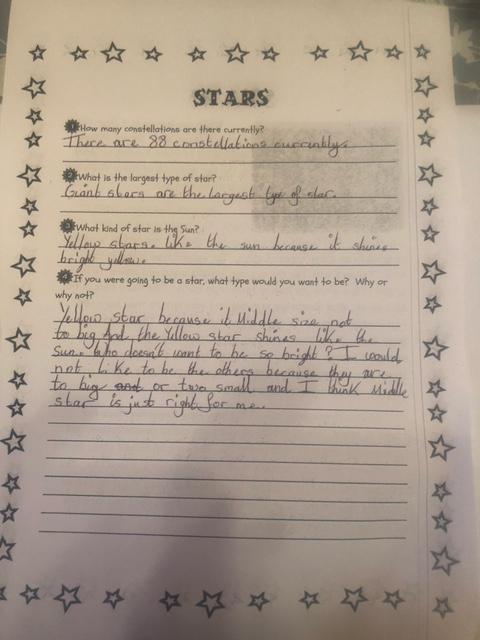 STARS
1 How many constellations are there currently?
There are 88 constellations currently.
2 What is the largest type of star?
Giant stars are the largest type of star.
3 What kind of star is the Sun?
Yellow stars. like the sun because it shines
bright yellow.
4 If you were going to be a star, what type would you want to be? Why or
why not?
Yellow star because it Middle size not
to big And the Yellow star shines like the
Sun. who doesn't want to be so bright? I would
not Like to be the others because they are
to big and or two small and I think Middle
star is just right for me.